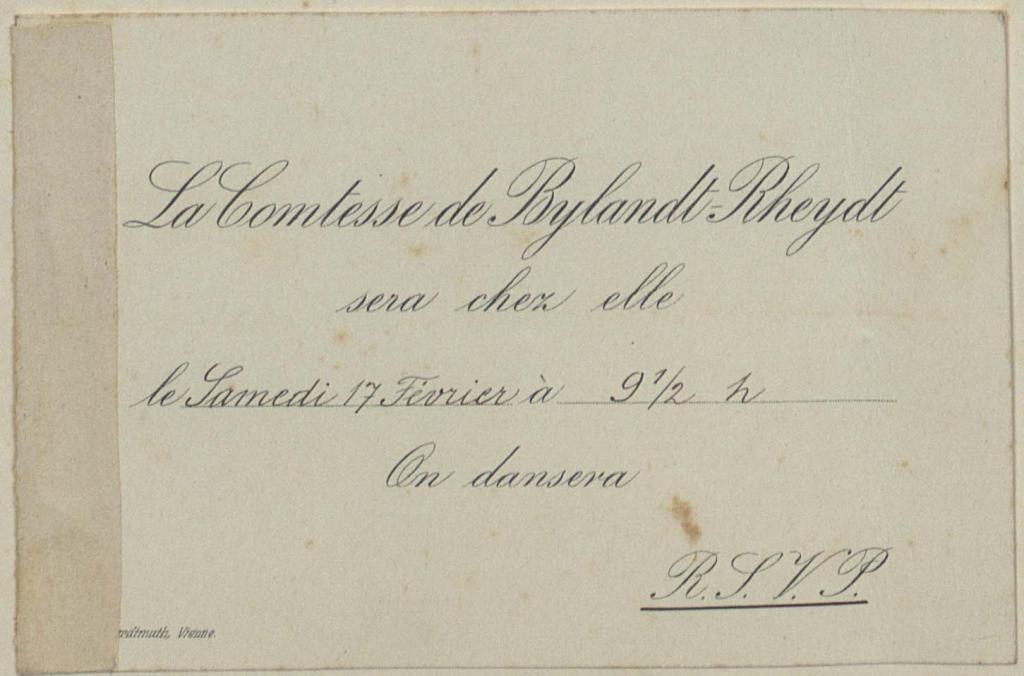 La Comtesse de Bylandt-Rheydt
sera chez elle
le Samedi 17 Février à 9 1/2 h
On dansera
R. S. V. P.
Vienne.